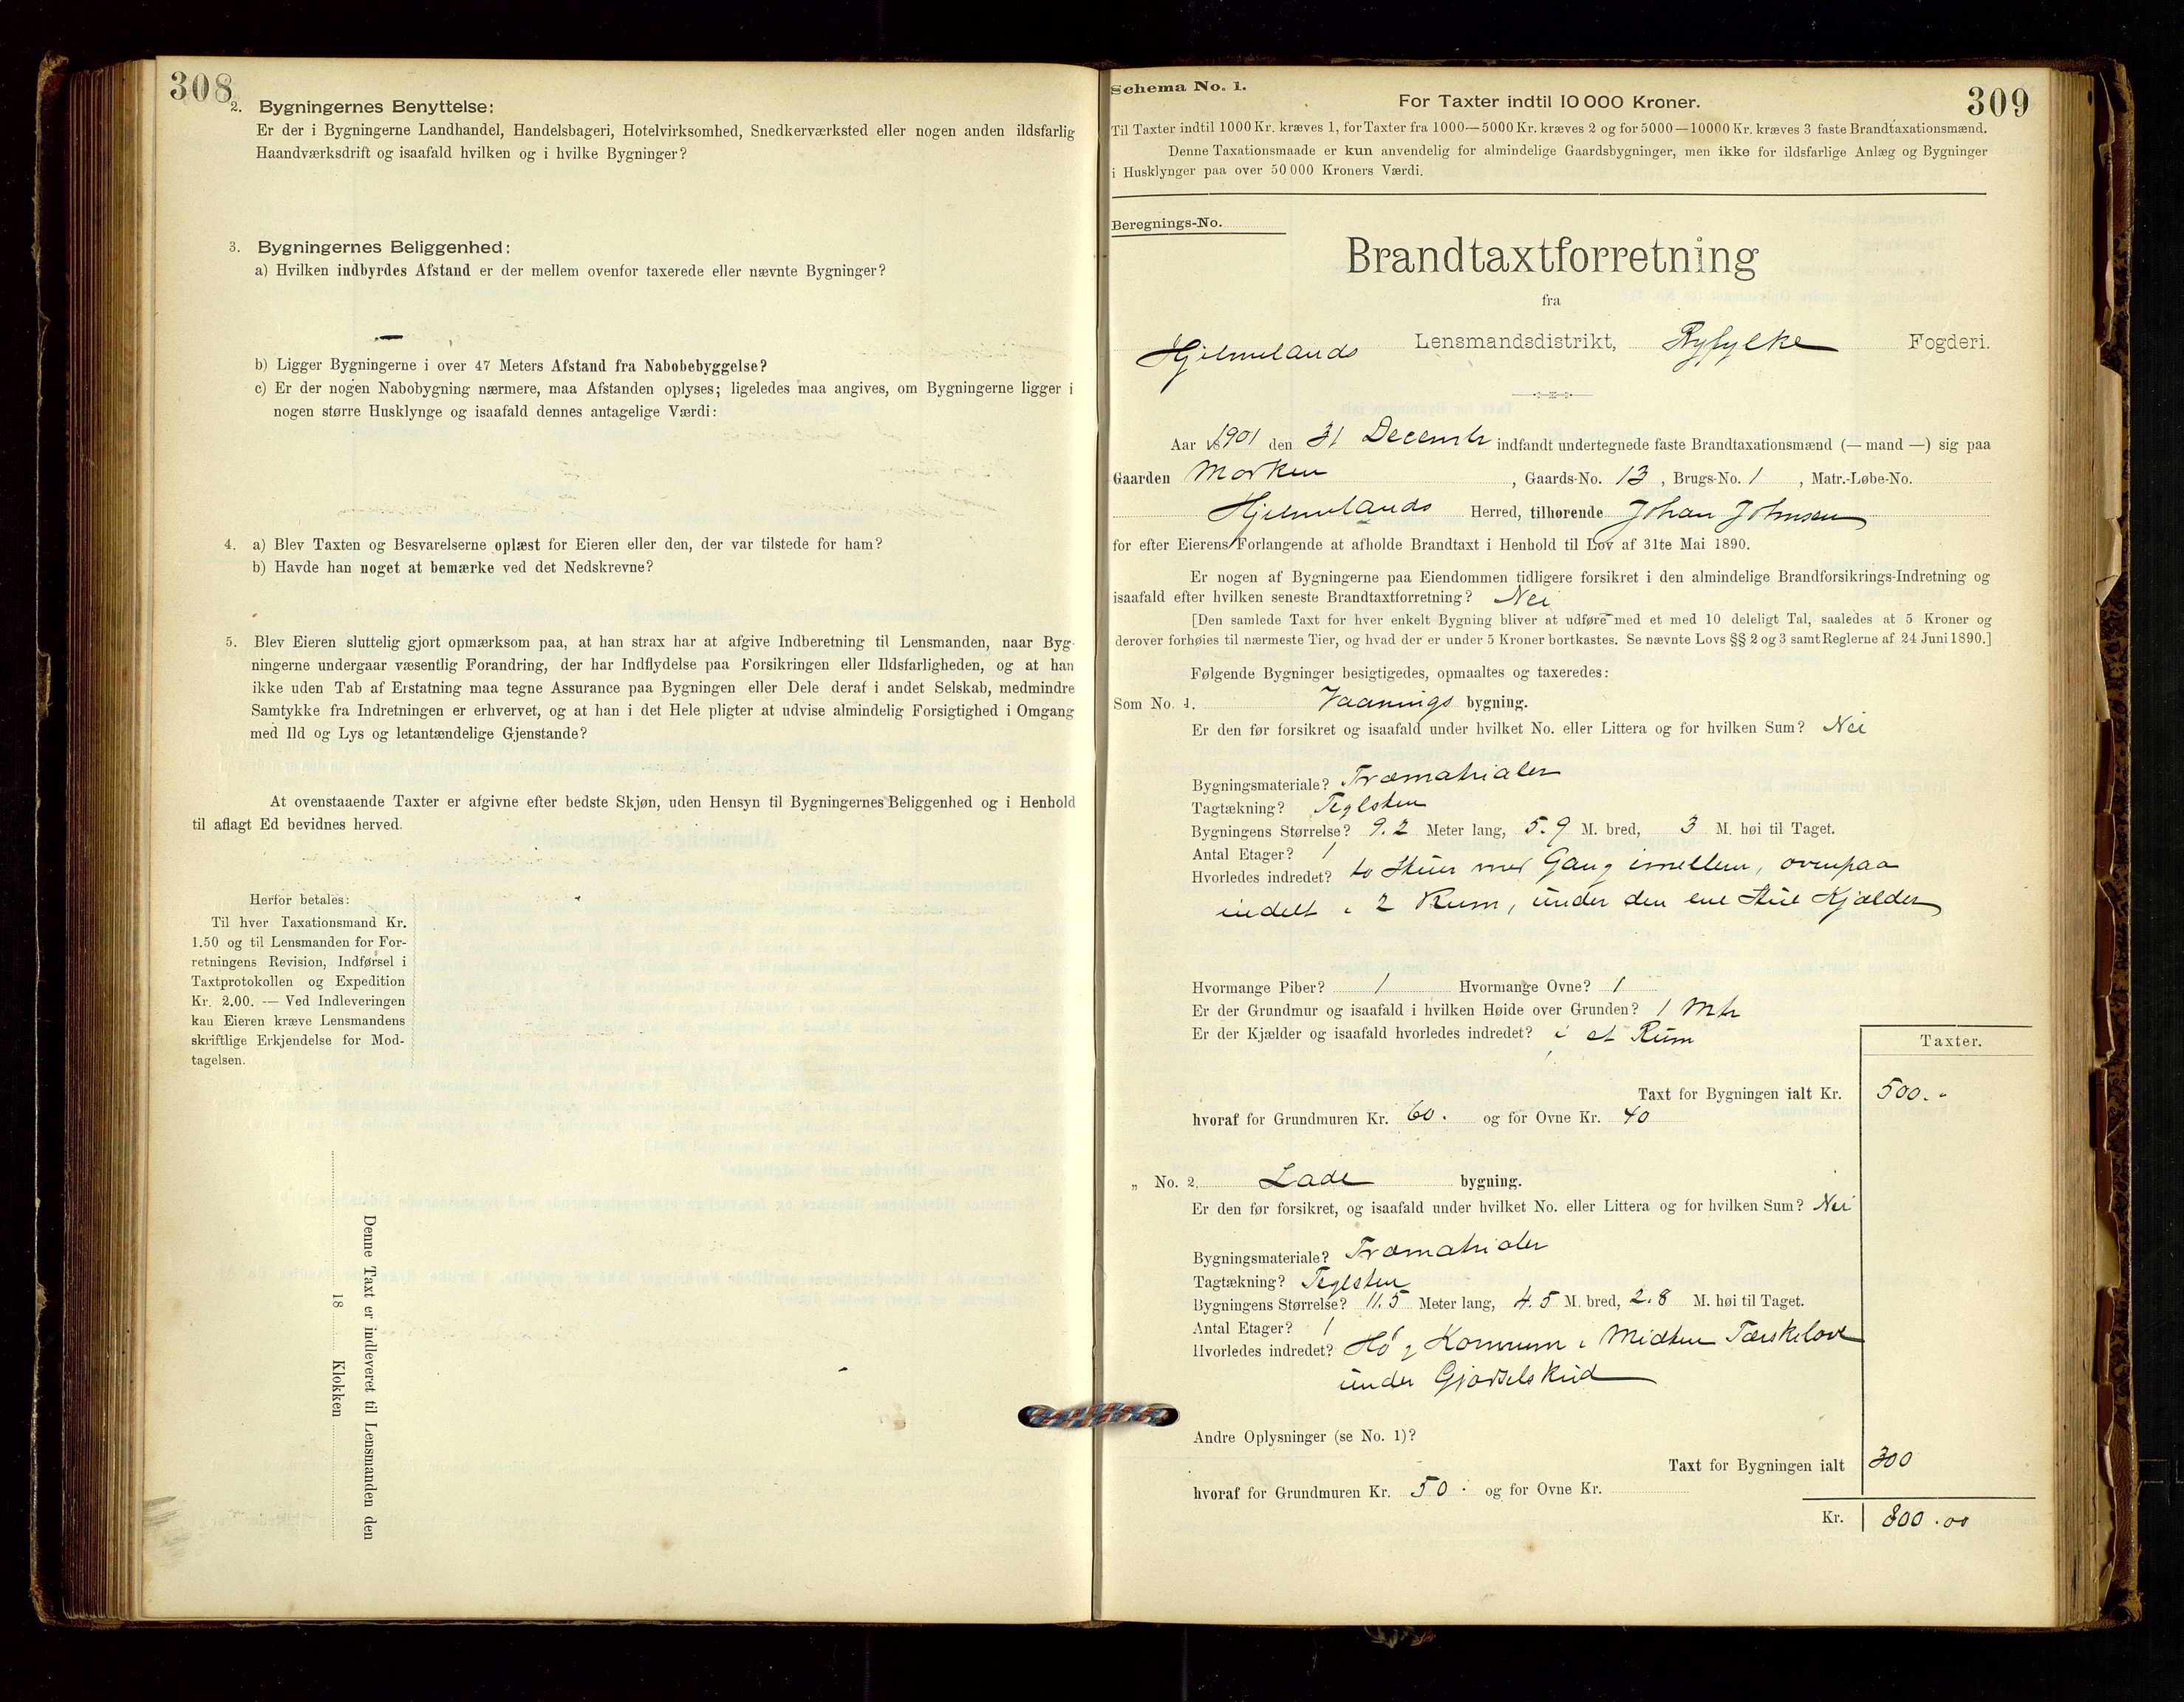 308
2. Bygningernes Benyttelse:
Er der i Bygningerne Landhandel, Handelsbageri, Hotelvirksomhed, Snedkerværksted eller nogen anden ildsfarlig
Haandværksdrift og isaafald hvilken og i hvilke Bygninger?
3. Bygningernes Beliggenhed:
a) Hvilken indbyrdes Afstand er der mellem ovenfor taxerede eller nævnte Bygninger?
b) Ligger Bygningerne i over 47 Meters Afstand fra Nabobebyggelse?
c) Er der nogen Nabobygning nærmere, maa Afstanden oplyses; ligeledes maa angives, om Bygningerne ligger i
nogen større Husklynge og isaafald dennes antagelige Værdi:
4. a) Blev Taxten og Besvarelserne oplæst for Eieren eller den, der var tilstede for ham?
b) Havde han noget at bemærke ved det Nedskrevne?
5. Blev Eieren sluttelig gjort opmærksom paa, at han strax har at afgive Indberetning til Lensmanden, naar Byg-
ningerne undergaar væsentlig Forandring, der har Indflydelse paa Forsikringen eller Ildsfarligheden, og at han
ikke uden Tab af Erstatning maa tegne Assurance paa Bygningen eller Dele deraf i andet Selskab, medmindre
Samtykke fra Indretningen er erhvervet, og at han i det Hele pligter at udvise almindelig Forsigtighed i Omgang
med Ild og Lys og letantændelige Gjenstande?
At ovenstaaende Taxter er afgivne efter bedste Skjøn, uden Hensyn til Bygningernes Beliggenhed og i Henhold
til aflagt Ed bevidnes herved.
Herfor betales:
Til hver Taxationsmand Kr.
1.50 og til Lensmanden for For-
retningens Revision, Indførsel i
Taxtprotokollen og Expedition
Kr. 2.00. — Ved Indleveringen
kan Eieren kræve Lensmandens
skriftlige Erkjendelse for Mod-
tagelsen.
Denne Taxt er indleveret til Lensmanden den
18 Klokken
Schema No. 1.
309
For Taxter indtil 10 000 Kroner.
Til Taxter indtil 1000 Kr. kræves 1, for Taxter fra 1000—5000 Kr. kræves 2 og for 5000—10000 Kr. kræves 3 faste Brandtaxationsmænd.
Denne Taxationsmaade er kun anvendelig for almindelige Gaardsbygninger, men ikke for ildsfarlige Anlæg og Bygninger
i Husklynger paa over 50 000 Kroners Værdi.
Beregnings-No.
Brandtaxtforretning
fra
Hjelmelands Lensmandsdistrikt, Ryfylke Fogderi.
Aar 1901 den 31 Decembr indfandt undertegnede faste Brandtaxationsmænd (— mand —) sig paa
Gaarden Morken, Gaards-No. 13, Brugs-No. 1, Matr.-Løbe-No.
Hjelmelands Herred, tilhørende Johan Johnsen
for efter Eierens Forlangende at afholde Brandtaxt i Henhold til Lov af 31te Mai 1890.
Er nogen af Bygningerne paa Eiendommen tidligere forsikret i den almindelige Brandforsikrings-Indretning og
isaafald efter hvilken seneste Brandtaxtforretning? Nei
[Den samlede Taxt for hver enkelt Bygning bliver at udføre med et med 10 deleligt Tal, saaledes at 5 Kroner og
derover forhøies til nærmeste Tier, og hvad der er under 5 Kroner bortkastes. Se nævnte Lovs §§ 2 og 3 samt Reglerne af 24 Juni 1890.]
Følgende Bygninger besigtigedes, opmaaltes og taxeredes:
Som No. 1. Vaanings bygning.
Er den før forsikret og isaafald under hvilket No. eller Littera og for hvilken Sum? Nei
Bygningsmateriale? Træmatrialer
Tagtækning? Teglsten
Bygningens Størrelse? 9.2 Meter lang, 5.9 M. bred, 3 M. høi til Taget.
Antal Etager? 1
Hvorledes indredet? to Stuer med Gang imellem, ovenpaa
indelt i 2 Rum, under den ene Stue Kjælder
Hvormange Piber? 1 Hvormange Ovne? 1
Er der Grundmur og isaafald i hvilken Høide over Grunden? 1 Mtr
Er der Kjælder og isaafald hvorledes indredet? i et Rum
Taxter.
Taxt for Bygningen ialt Kr. 500.-
hvoraf for Grundmuren Kr. 60. og for Ovne Kr. 40
„ No. 2. Lade bygning.
Er den før forsikret, og isaafald under hvilket No. eller Littera og for hvilken Sum? Nei
Bygningsmateriale? Træmatrialer
Tagtækning? Teglsten
Bygningens Størrelse? 11.5 Meter lang, 4.5 M. bred, 2.8 M. høi til Taget.
Antal Etager? 1
Hvorledes indredet? Hø og Kornrum i Midten Tærskelove
under Gjødselskud
Andre Oplysninger (se No. 1)?
Taxt for Bygningen ialt 300
hvoraf for Grundmuren Kr. 50. og for Ovne Kr.
Kr. 800.00